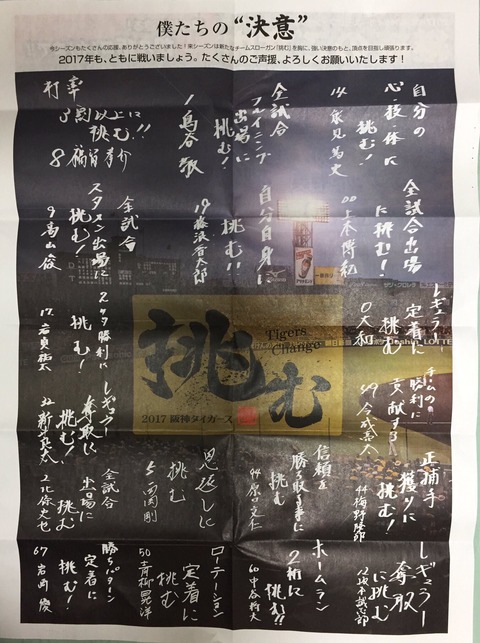 僕たちの“決意”
今シーズンもたくさんの応援、ありがとうございました！来シーズンは新たなチームスローガン「挑む」を胸に、強い決意のもと、頂点を目指し頑張ります。
2017年も、ともに戦いましょう。たくさんのご声援、よろしくお願いいたします！
自分の
心・技・体に
挑む！
14 能見篤史
全試合
フルイニング
出場に
挑む！
1 鳥谷敬
打率
3割以上に
挑む!!
8 福留孝介
全試合出場
に挑む！
00 上本博紀
自分自身に
挑む!!
19 藤浪晋太郎
全試合
スタメン出場に
挑む！
9 高山俊
レギュラー
定着に
挑む
0 大和
2ケタ勝利に
挑む！
17 岩貞祐太
チームの
勝利に
貢献する。
49 今成亮太
レギュラー
奪取に
挑む！
32 新井良太
正捕手
獲りに
挑む！
44 梅野隆太郎
信頼を
勝ち取る事に
挑む
94 原口文仁
恩返しに
挑む
5 西岡剛
全試合
出場に
挑む
2 北條史也
レギュラー
奪取
に挑む
12 坂本誠志郎
ホームラン
2桁に
挑む!!
60 中谷将大
ローテーション
定着に
挑む
50 青柳晃洋
勝ちパターン
定着に
挑む！
67 岩崎優
挑む
Tigers
Change
2017 阪神タイガース